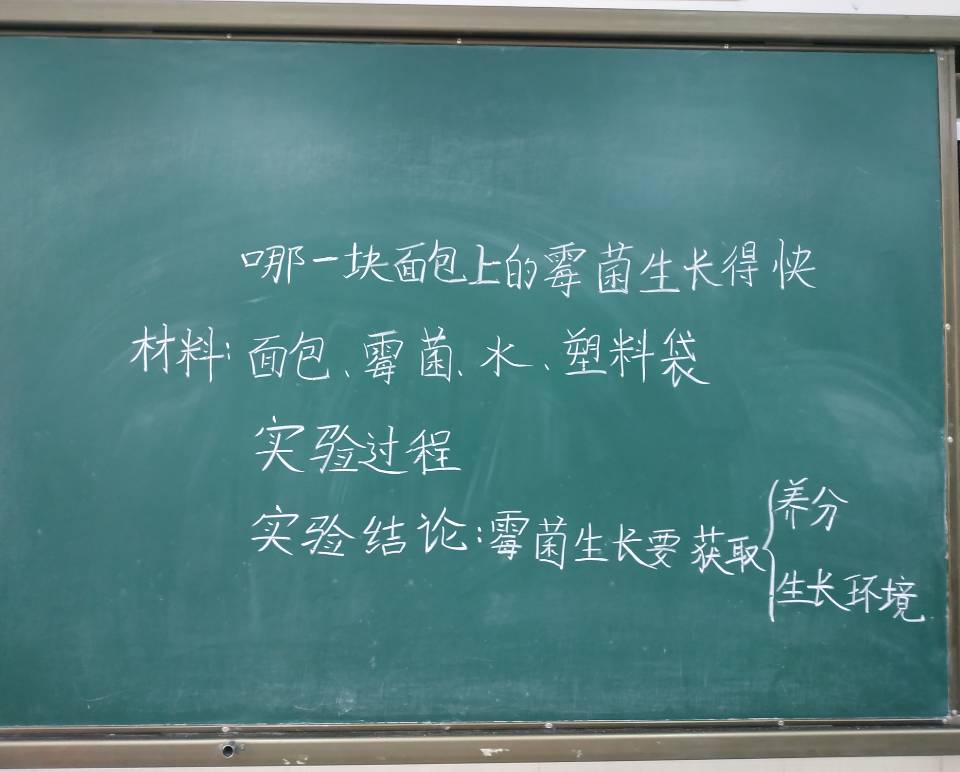 哪一块面包上的霉菌生长得快
材料:面包、霉菌、水、塑料袋
实验过程
实验结论:霉菌生长要获取{养分
生长环境